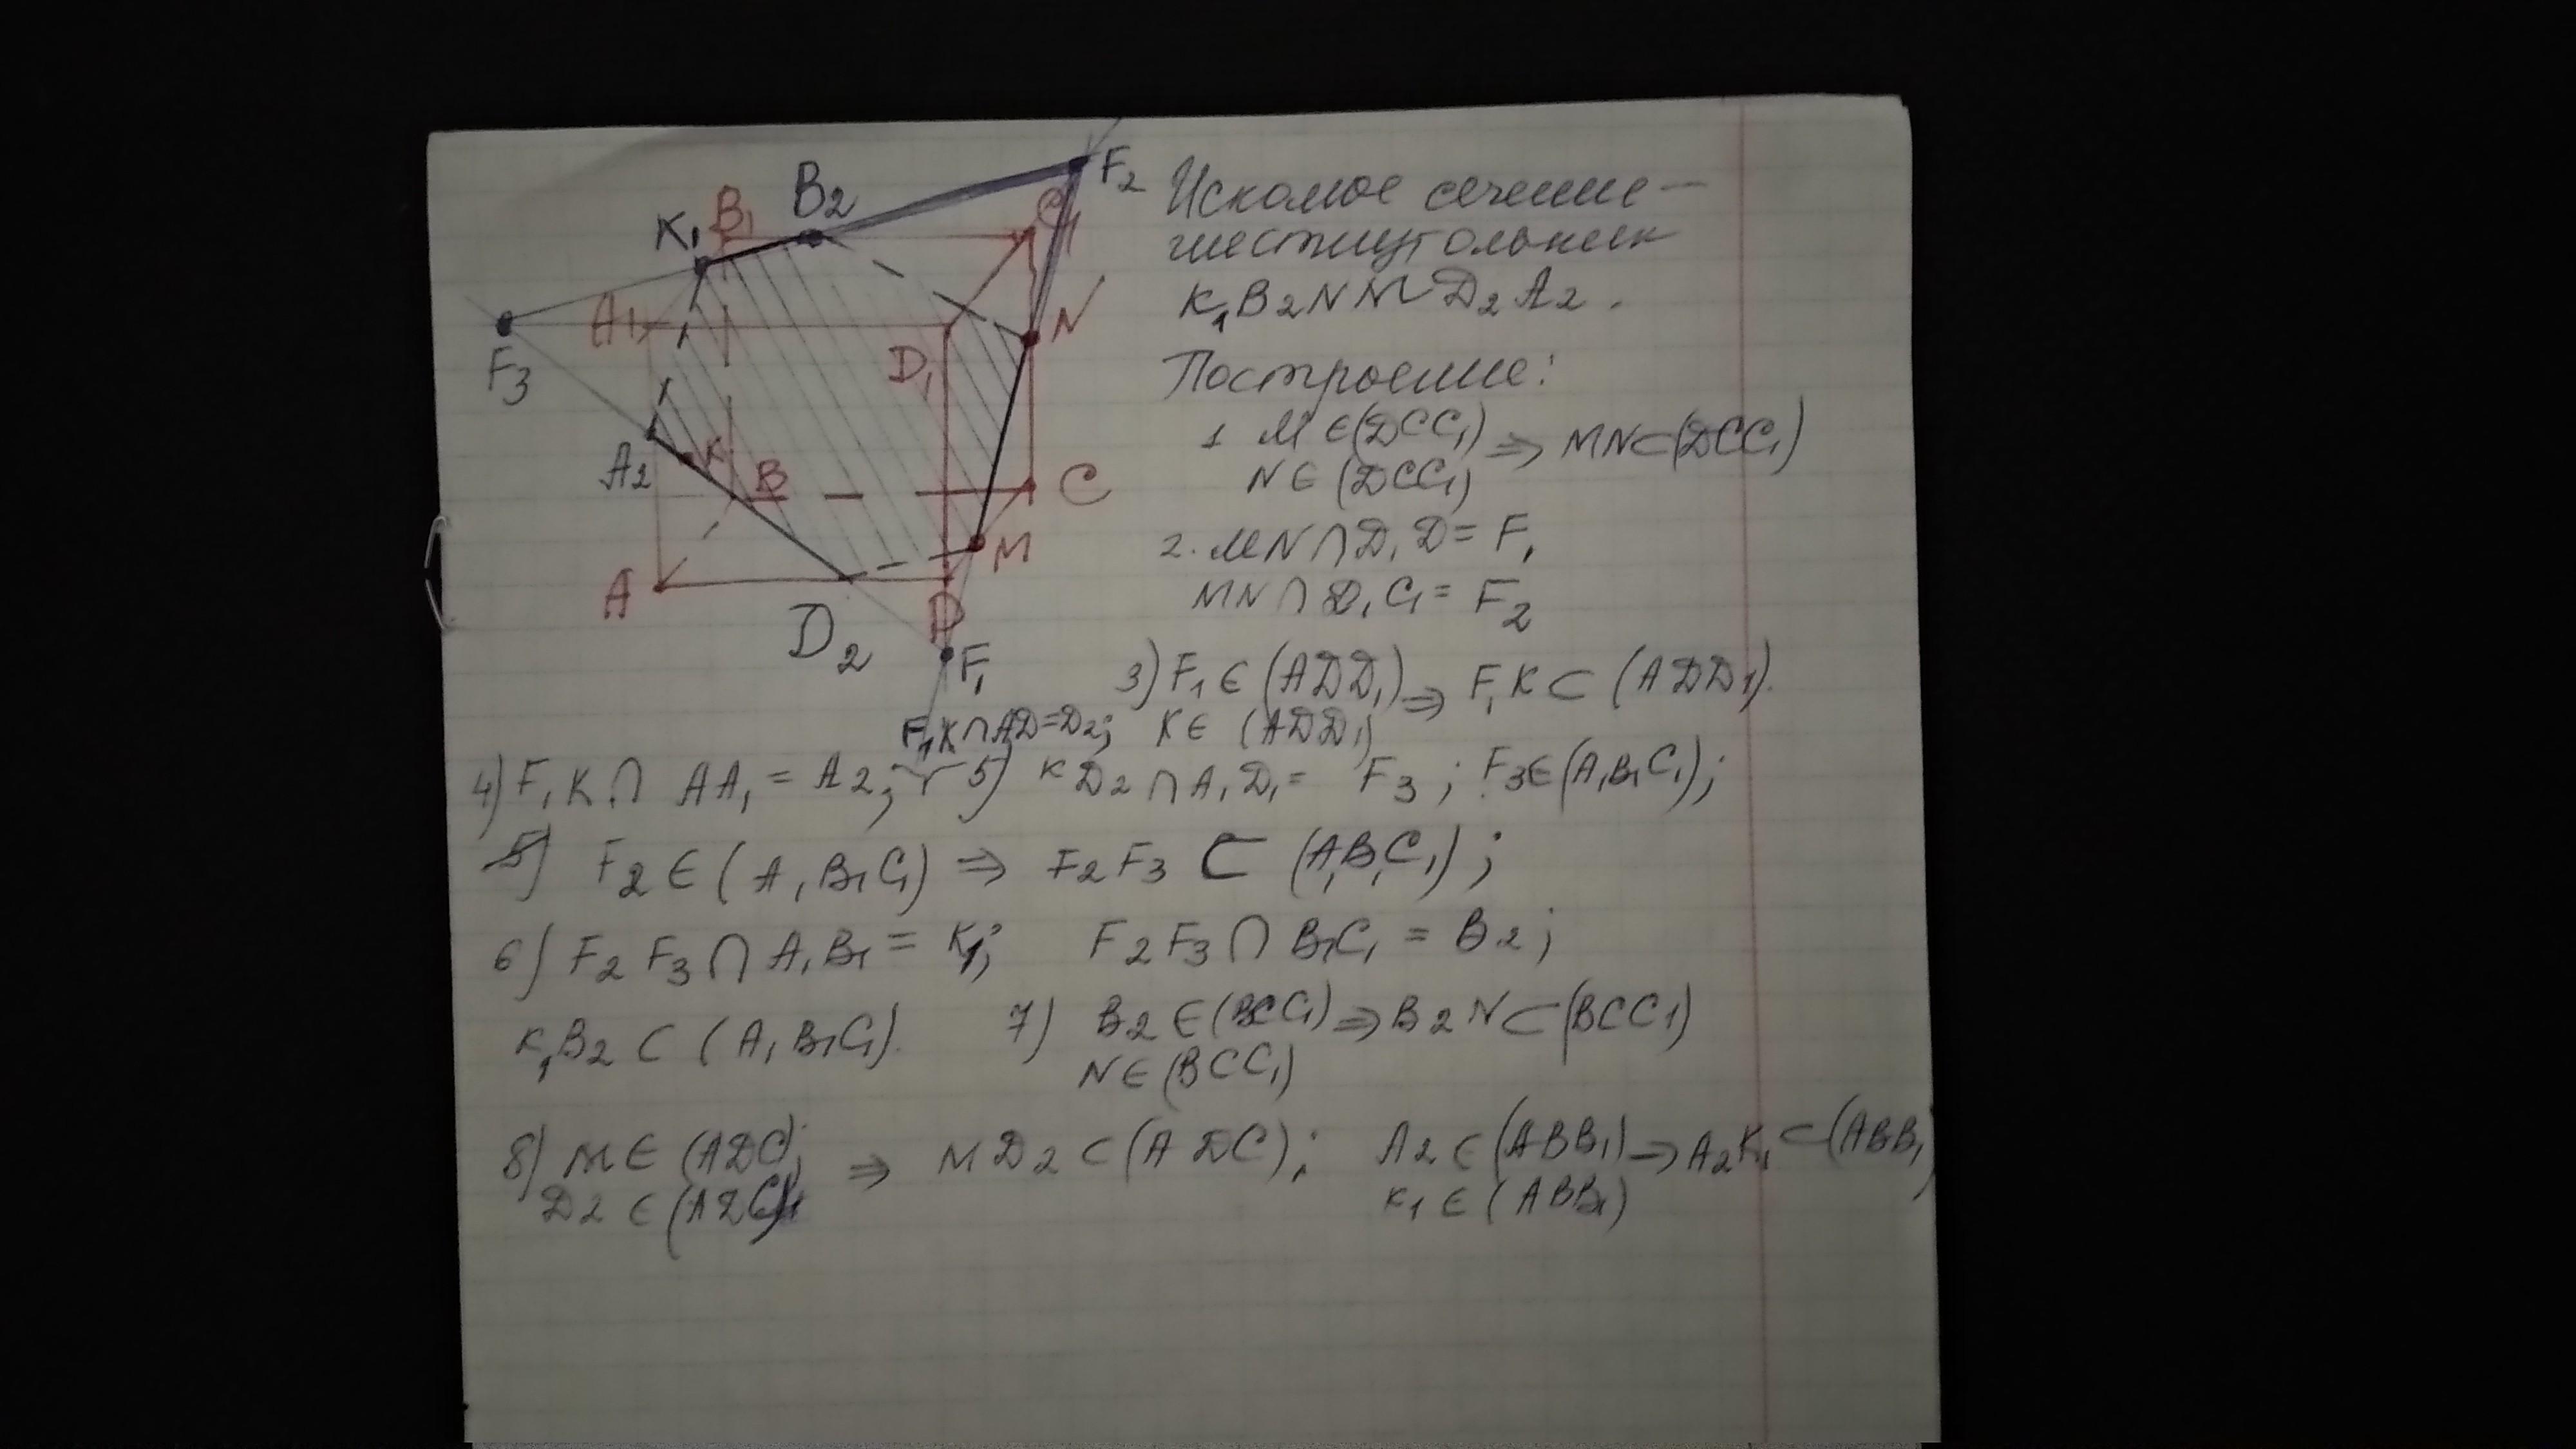 K₁ B₁ B2 F2
A₁ C₁
F3 D₁ N
A2 K B C
A D2 D M
F₁
Искомое сечение —
шестиугольник
K₁B2NMD2A2.
Построение:
1 M ∈ (DCC₁) ⇒ MN ⊂ (DCC₁)
N ∈ (DCC₁)
2. MN ∩ D₁D = F₁
MN ∩ D₁C₁ = F2
3) F₁ ∈ (ADD₁) ⇒ F₁K ⊂ (ADD1).
F₁K ∩ AD = D2; K ∈ (ADD₁)
4) F₁K ∩ AA₁ = A2; 5) KD2 ∩ A₁D₁ = F3; F3 ∈ (A₁B₁C₁);
F2 ∈ (A₁B₁C₁) ⇒ F2F3 ⊂ (A₁B₁C₁);
6) F2F3 ∩ A₁B₁ = K₁; F2F3 ∩ B₁C₁ = B2;
K₁B2 ⊂ (A₁B₁C₁). 7) B2 ∈ (BCC₁) ⇒ B2N ⊂ (BCC1)
N ∈ (BCC₁)
8) M ∈ (ADC); ⇒ MD2 ⊂ (ADC); A2 ∈ (ABB₁) ⇒ A2K₁ ⊂ (ABB₁)
D2 ∈ (ADC) K₁ ∈ (ABB₁)